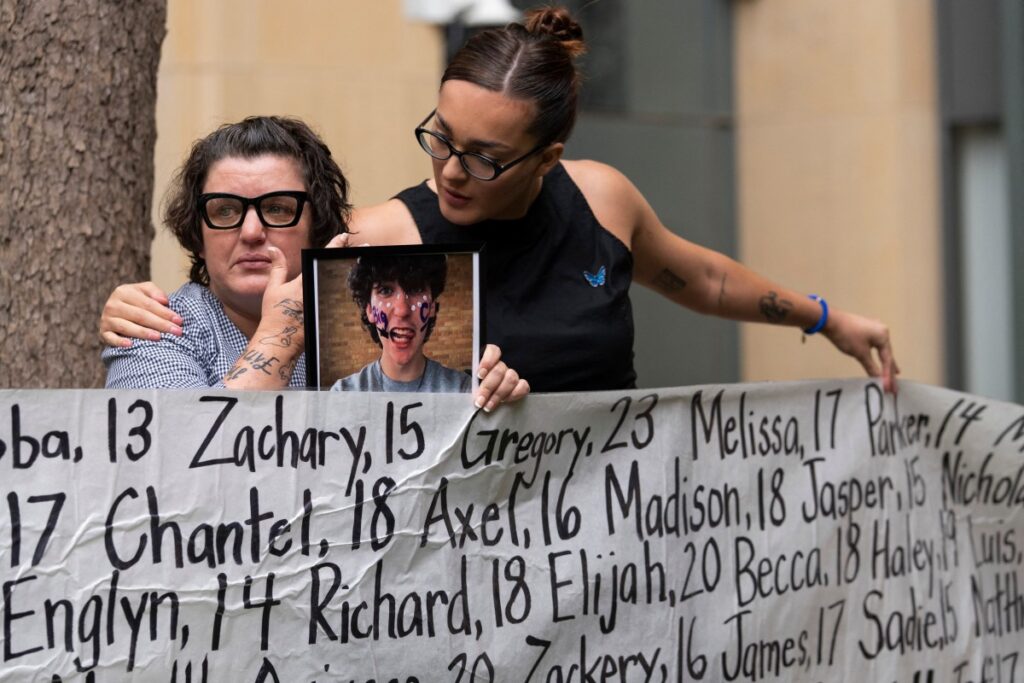 13 Zachary, 15 Gregory, 23 Melissa, 17 Parker, 14
17 Chantel, 18 Axel, 16 Madison, 18 Jasper, 15
Englyn, 14 Richard, 18 Elijah, 20 Becca, 18 Haley, 19 Luis,
20 Zackery, 16 James, 17 Sadie, 15